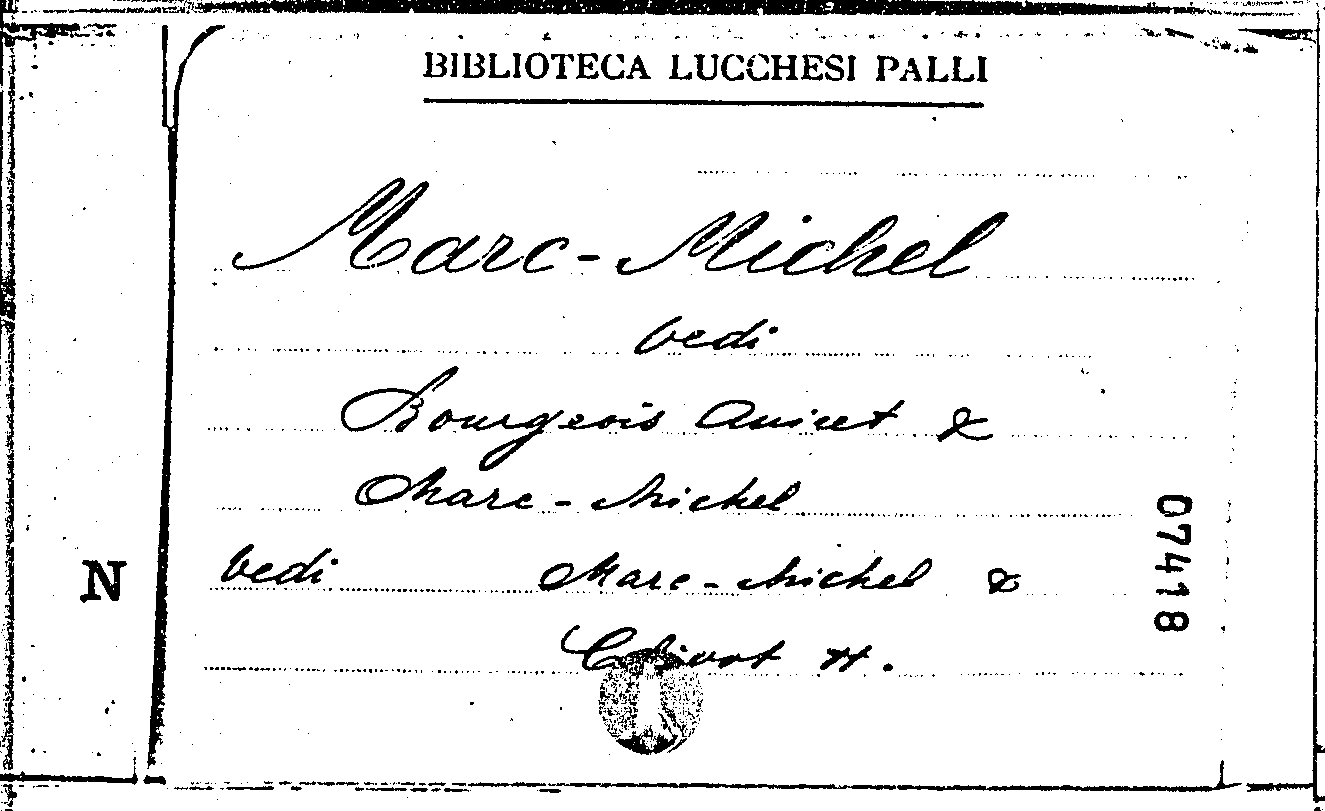 BIBLIOTECA LUCCHESI PALLI
Marc-Michel
vedi
Bourgeois Anicet &
Marc-Michel
vedi Marc-Michel &
H.
N
07418